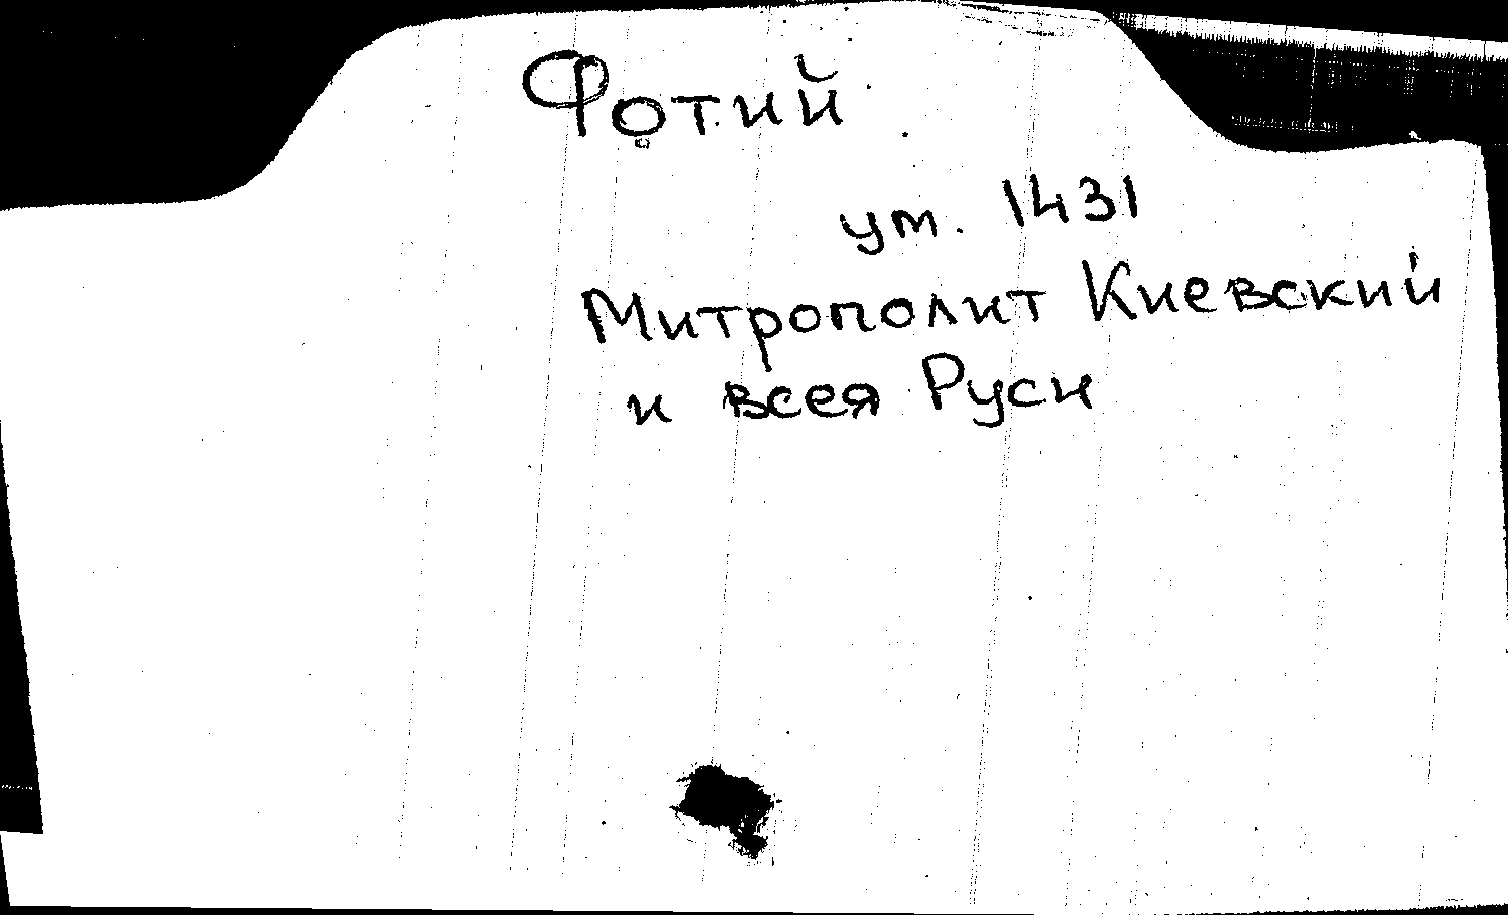 Фотий
ум. 1431
Митрополит Киевский
и всея Руси